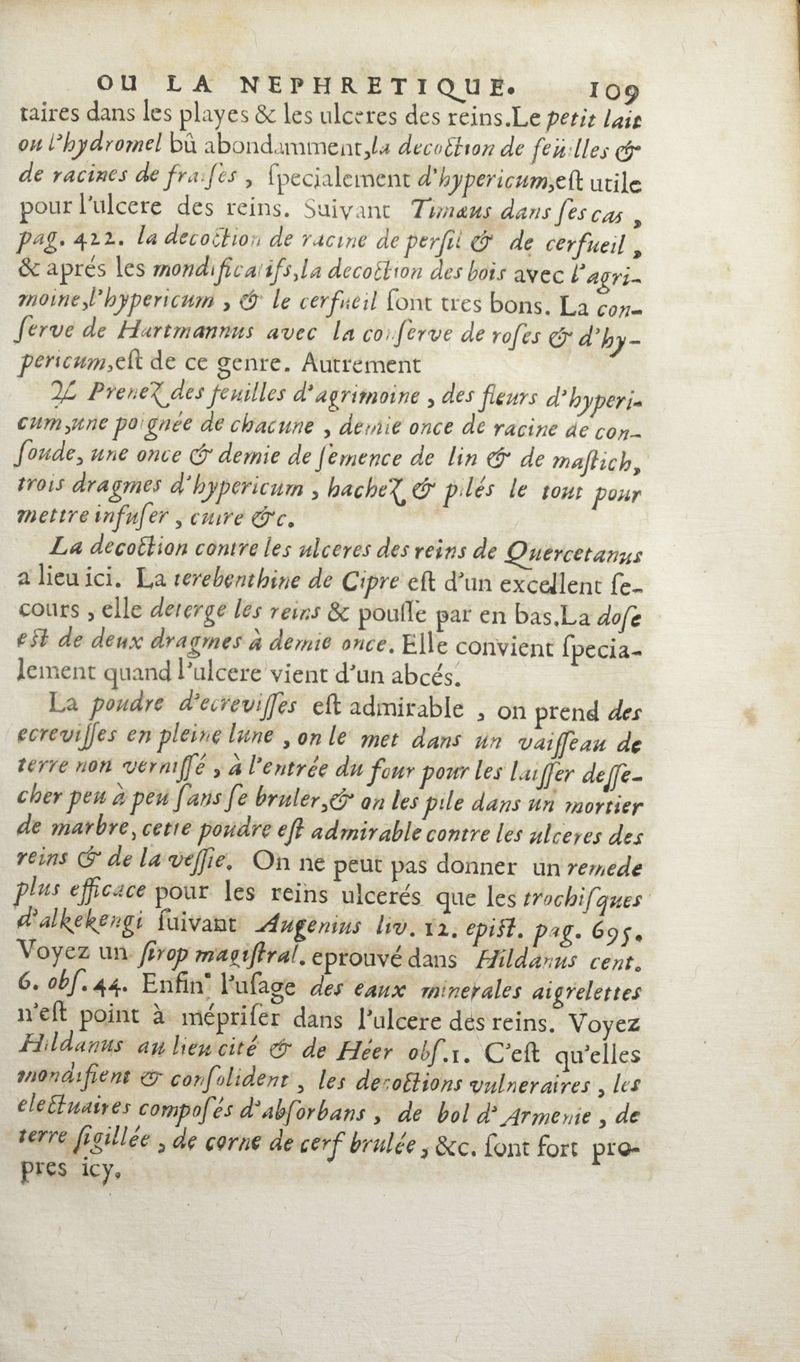 OU LA NEPHRETIQUE. 109
taires dans les playes & les ulceres des reins.Le petit lait
ou l'hydromel bû abondamment,la decoction de feü lles &
de racines de fraises , specialement d'hypericum,est utile
pour l'ulcere des reins. Suivant Timæus dans ses cas ,
pag. 422. la decoction de racine de persil & de cerfueil ,
& aprés les mondificatifs,la decoction des bois avec l'agri-
moine,l'hypericum , & le cerfueil sont tres bons. La con-
serve de Hartmannus avec la conserve de roses & d'hy-
pericum,est de ce genre. Autrement
♃ Prenez des feuilles d'agrimoine , des fleurs d'hyperi-
cum,une poignée de chacune , demie once de racine de con-
soude, une once & demie de semence de lin & de mastich,
trois dragmes d'hypericum , hachez & pilés le tout pour
mettre infuser , cuire &c.
La decoction contre les ulceres des reins de Quercetanus
a lieu ici. La terebenthine de Cipre est d'un excellent se-
cours , elle deterge les reins & pousse par en bas.La dose
est de deux dragmes à demie once. Elle convient specia-
lement quand l'ulcere vient d'un abcés.
La poudre d'ecrevisses est admirable , on prend des
ecrevisses en pleine lune , on le met dans un vaisseau de
terre non vernissé , à l'entrée du four pour les laisser desse-
cher peu à peu sans se bruler,& on les pile dans un mortier
de marbre, cette poudre est admirable contre les ulceres des
reins & de la vessie. On ne peut pas donner un remede
plus efficace pour les reins ulcerés que les trochisques
d'alkekengi suivant Augenius liv. 12. epist. pag. 695.
Voyez un sirop magistral. eprouvé dans Hildanus cent.
6. obs. 44. Enfin l'usage des eaux minerales aigrelettes
n'est point à mépriser dans l'ulcere des reins. Voyez
Hildanus au lieu cité & de Héer obs.1. C'est qu'elles
mondifient & consolident , les decoctions vulneraires , les
electuaires composés d'absorbans , de bol d'Armenie , de
terre sigillée , de corne de cerf brulée , &c. sont fort pro-
pres icy.